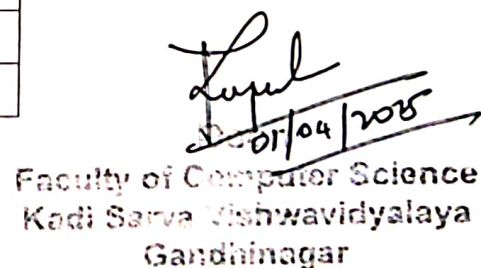 01/04/2025
Faculty of Computer Science
Kadi Sarva Vishwavidyalaya
Gandhinagar